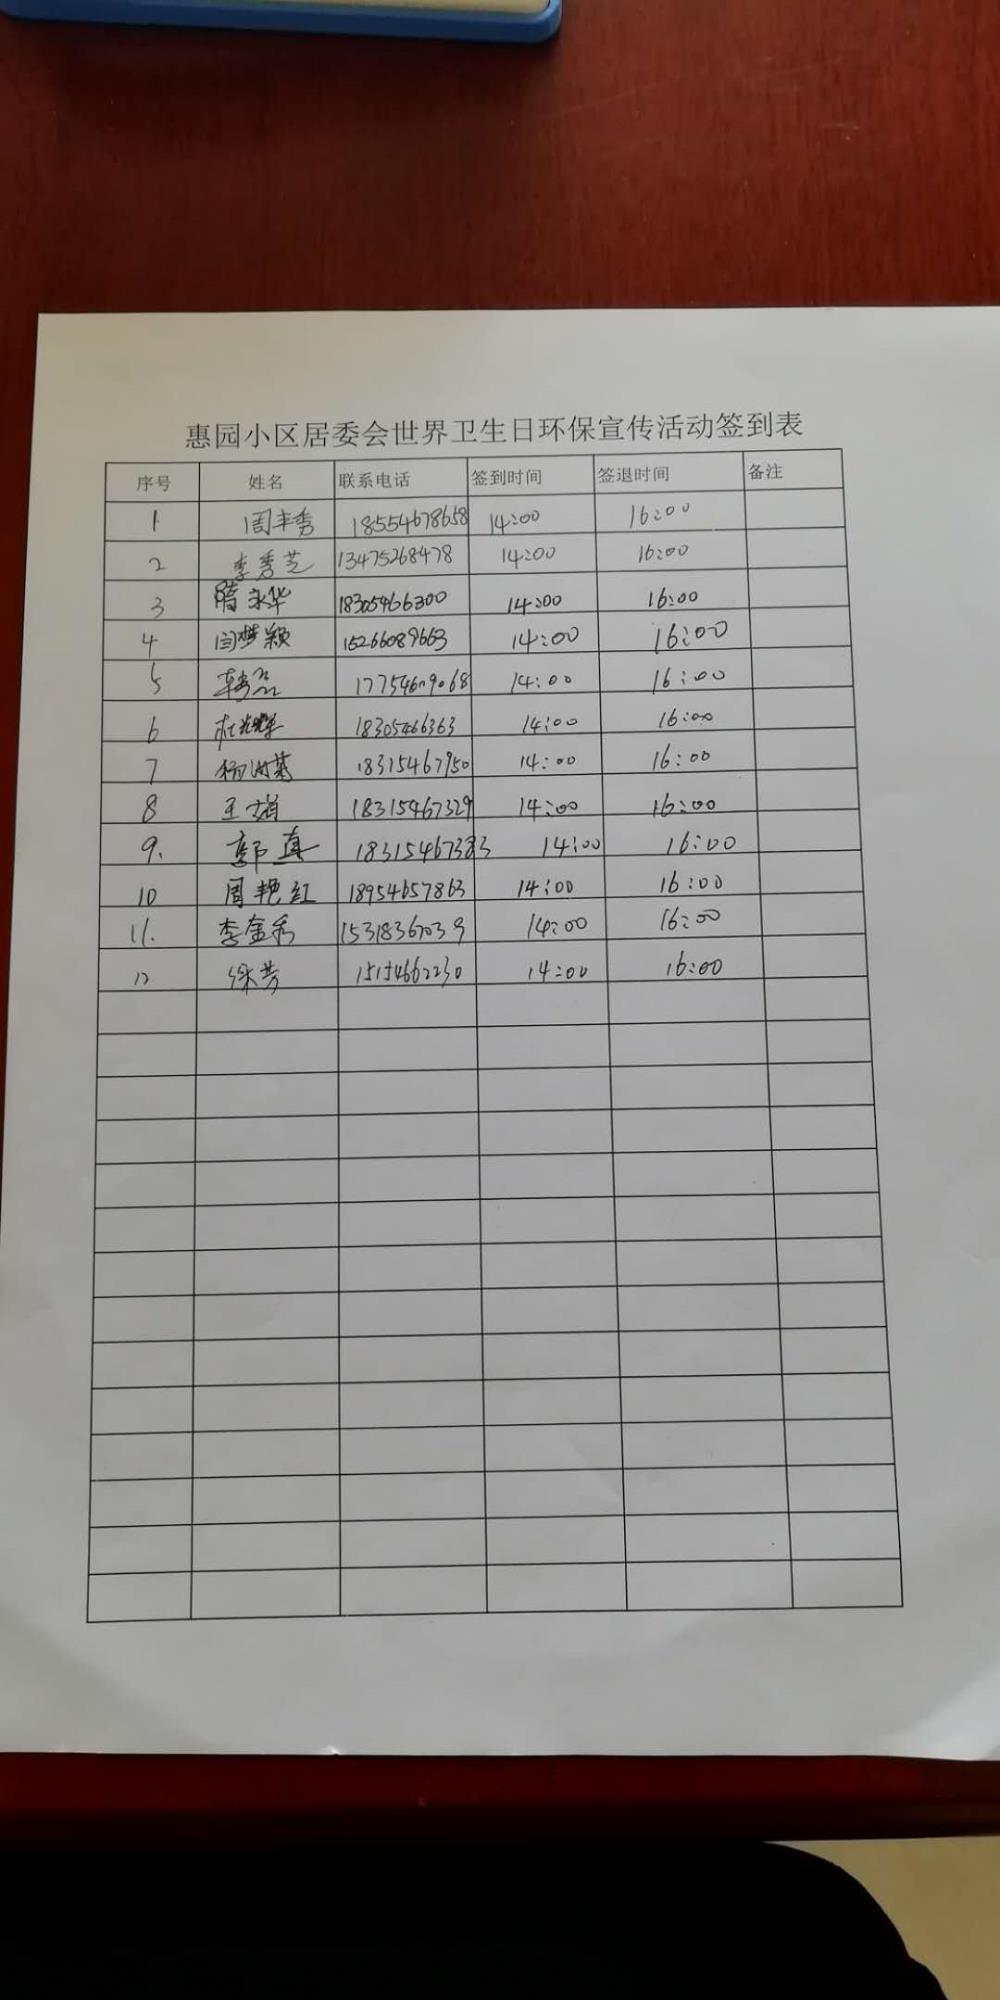 惠园小区居委会世界卫生日环保宣传活动签到表
序号 姓名 联系电话 签到时间 签退时间 备注
1 周丰秀 18554678658 14:00 16:00
2 李秀芝 13475268478 14:00 16:00
3 隋永华 18305466300 14:00 16:00
4 闫梦颖 15266089663 14:00 16:00
5 14:00 16:00
6 18305466363 14:00 16:00
7 18315467950 14:00 16:00
8 王 18315467329 14:00 16:00
9. 郭真 18315467383 14:00 16:00
10 周艳红 18954657863 14:00 16:00
11. 李金秀 15318367039 14:00 16:00
12 徐芳 15154662230 14:00 16:00